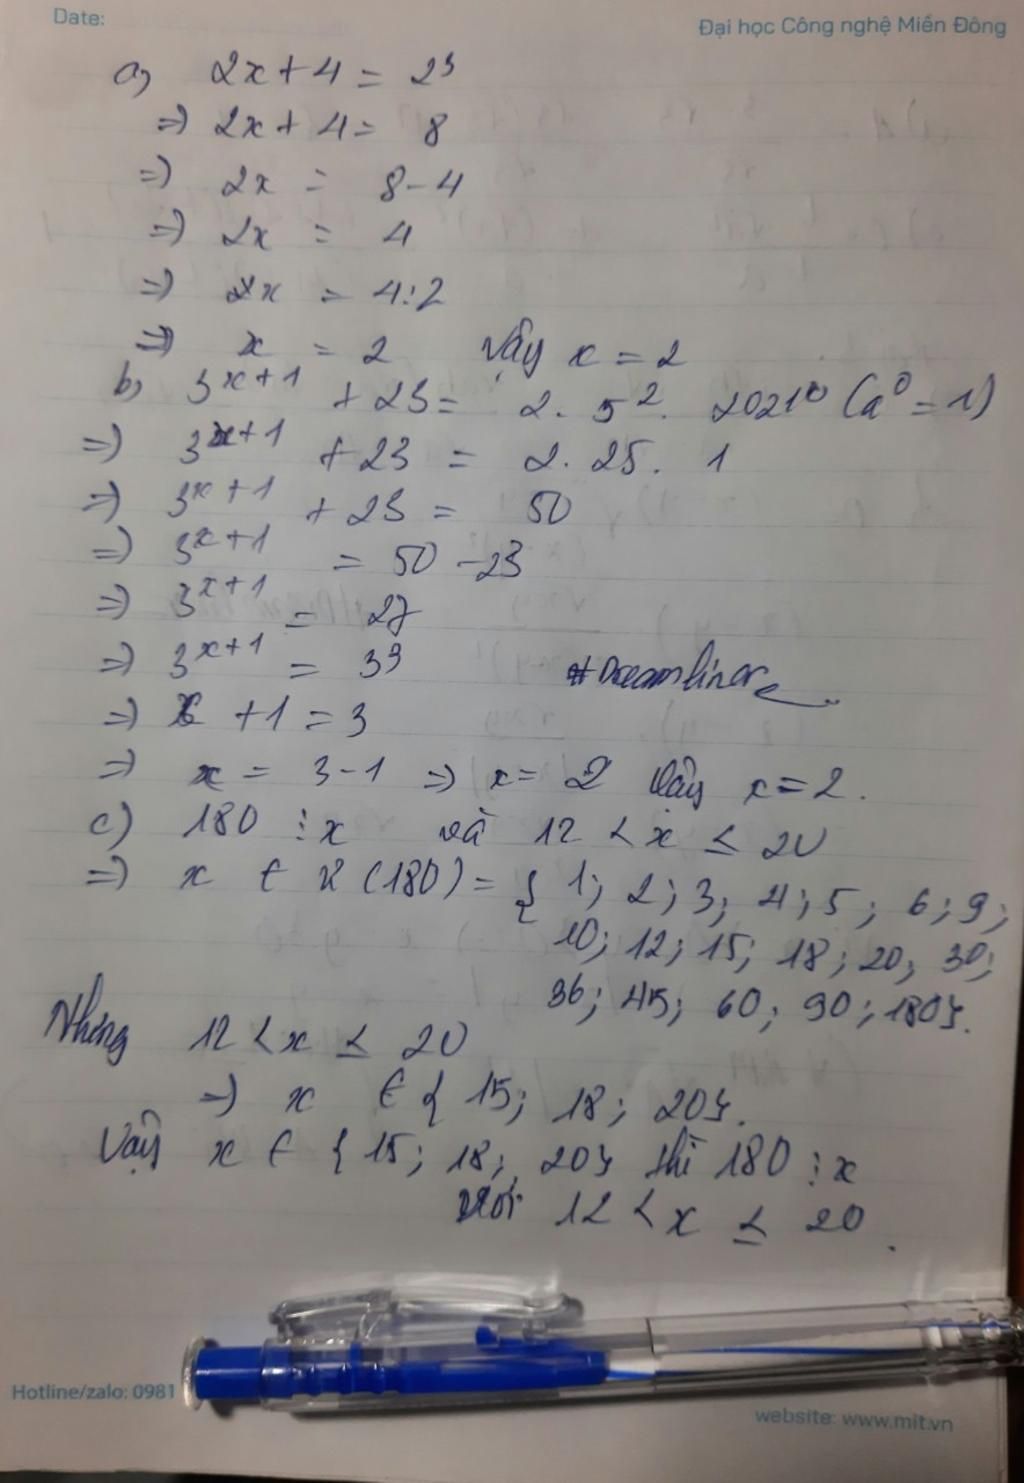 Date:
Đại học Công nghệ Miền Đông
a, 2x + 4 = 2³
=) 2x + 4 = 8
=) 2x = 8 - 4
=) 2x = 4
=) x = 4:2
=) x = 2 Vậy x = 2
b, 3^{x+1} + 23 = 2. 5². 2021⁰ (a⁰ = 1)
=) 3^{x+1} + 23 = 2. 25. 1
=) 3^{x+1} + 23 = 50
=) 3^{x+1} = 50 - 23
=) 3^{x+1} = 27
=) 3^{x+1} = 3³
#Dreamliner
=) x + 1 = 3
=) x = 3 - 1 =) x = 2 Vậy x = 2.
c) 180 ⋮ x và 12 < x ≤ 20
=) x ∈ Ư(180) = { 1; 2; 3; 4; 5; 6; 9;
10; 12; 15; 18; 20; 30;
36; 45; 60; 90; 180}.
Nhưng 12 < x ≤ 20
=) x ∈ { 15; 18; 20}.
Vậy x ∈ { 15; 18; 20} thì 180 ⋮ x
với 12 < x ≤ 20.
Hotline/zalo: 0981
website: www.mit.vn